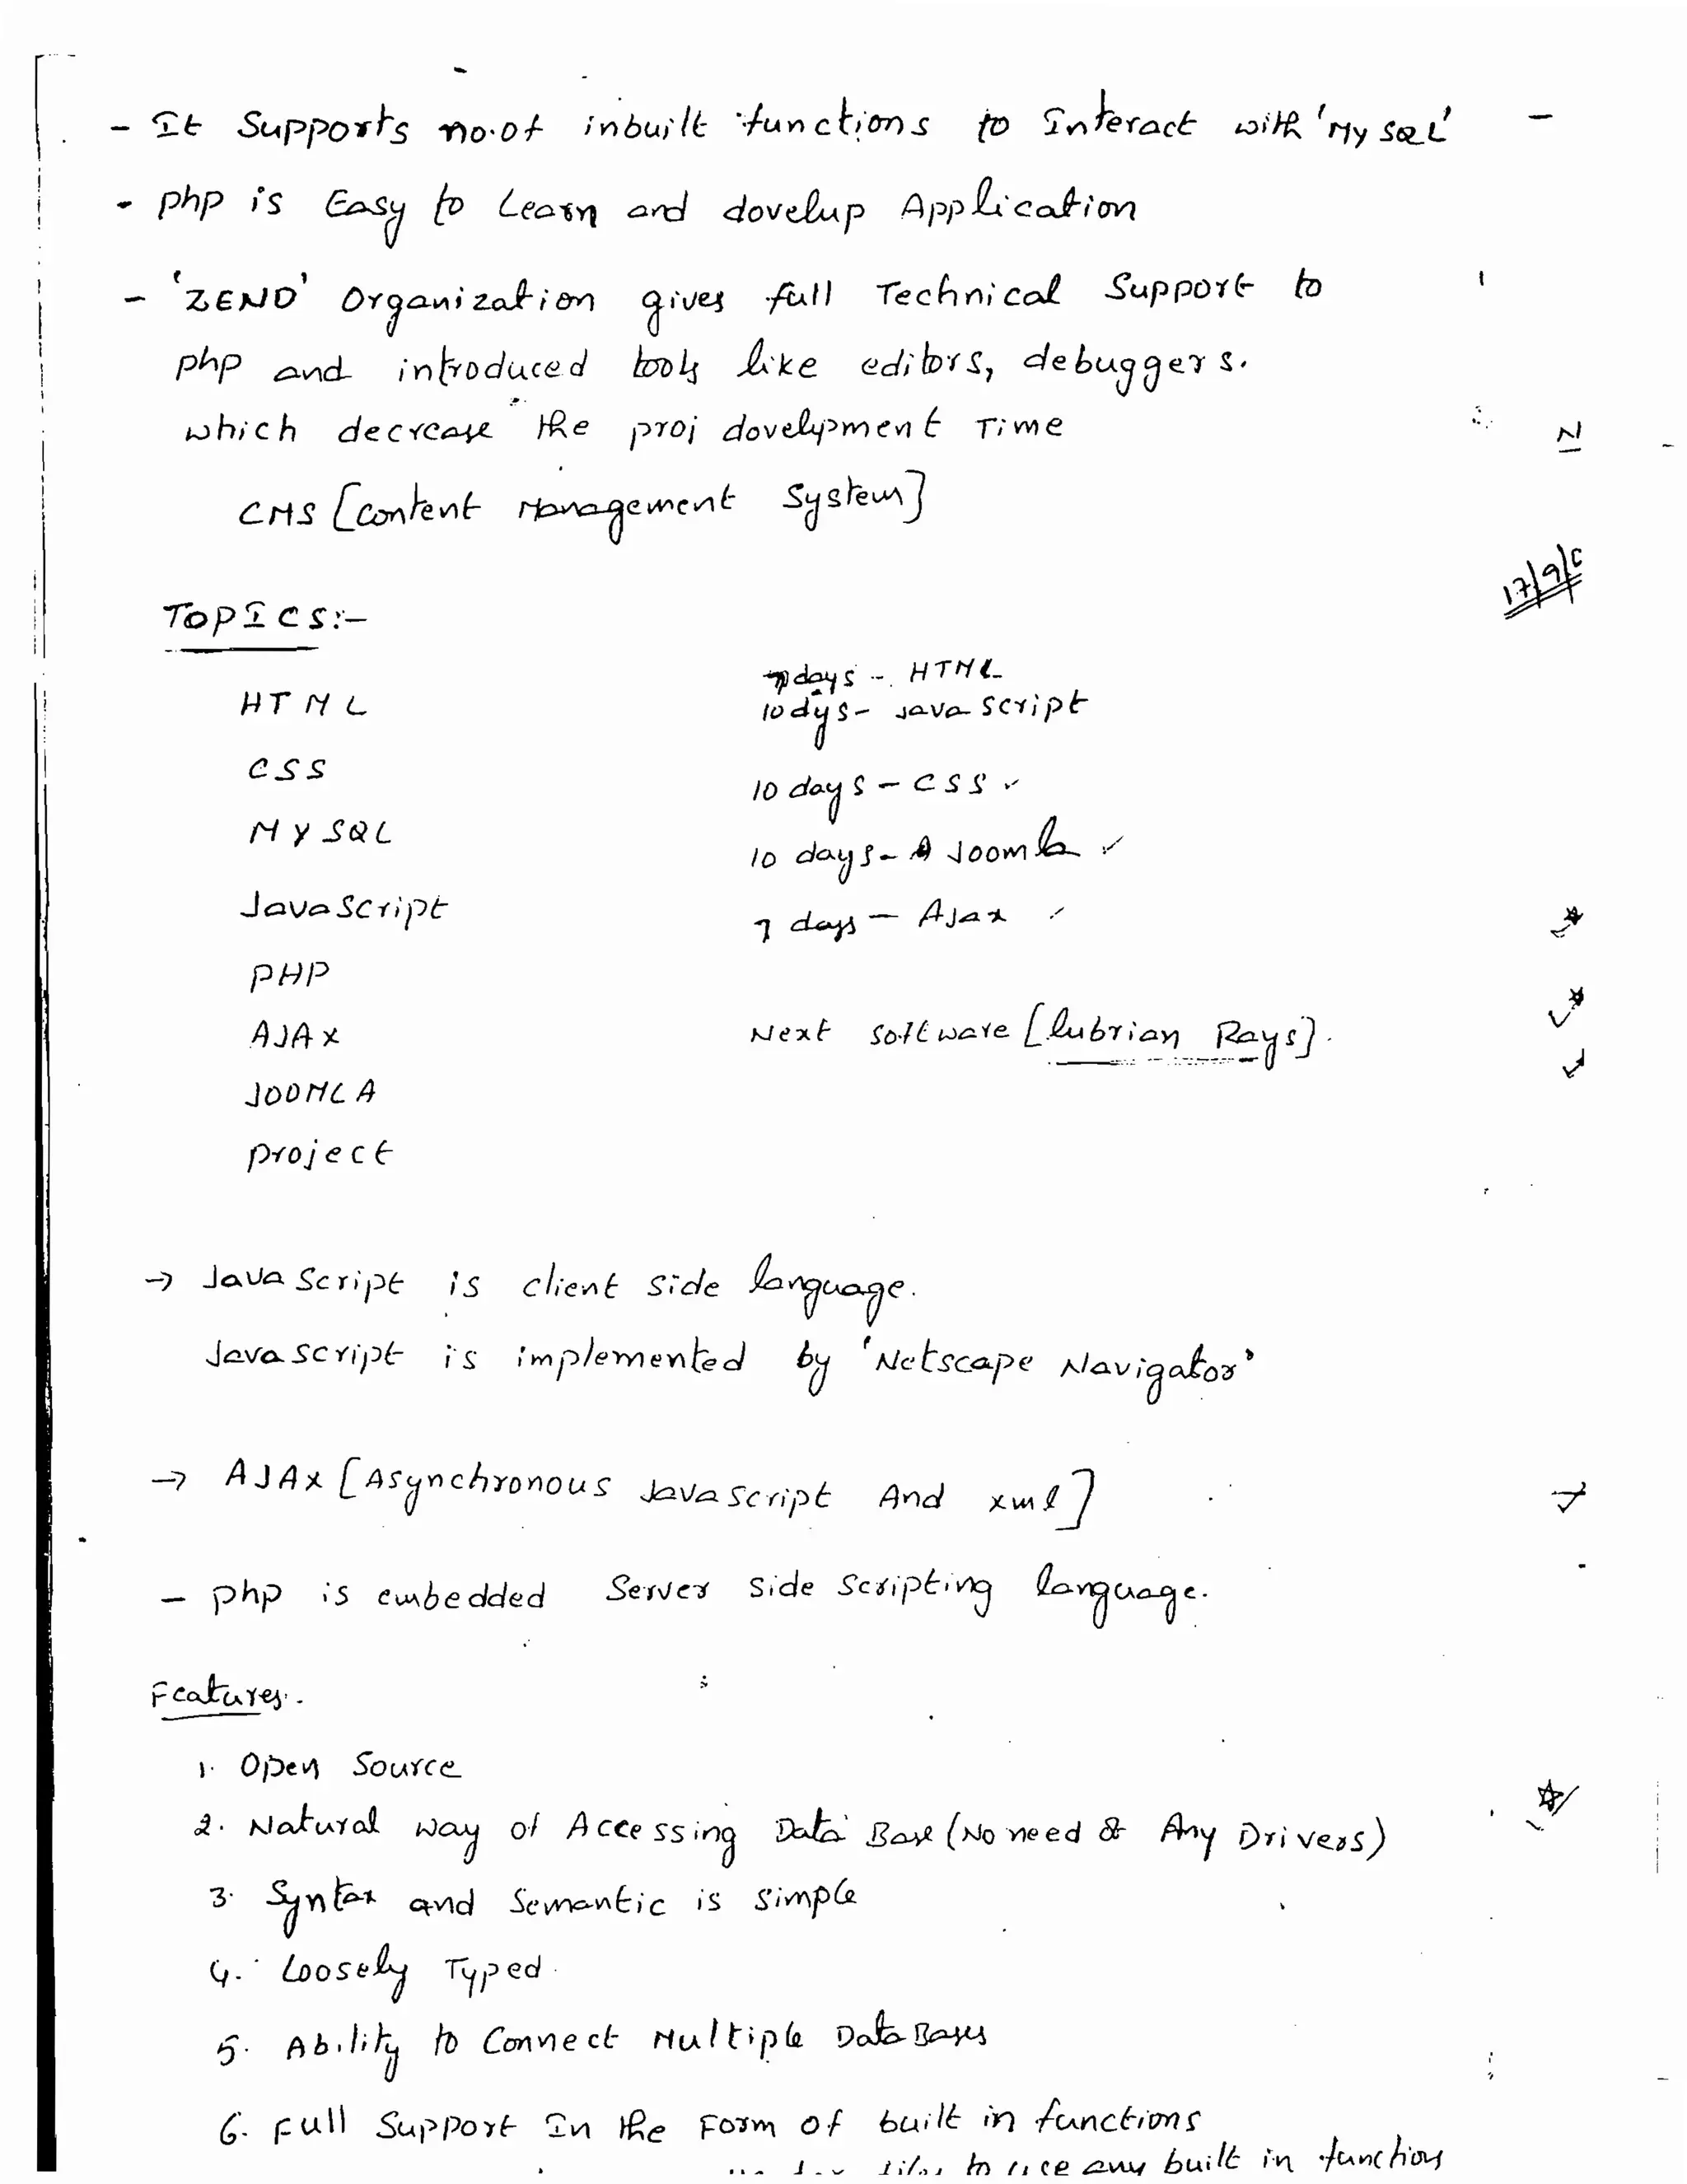 - It Supports no.of inbuilt functions to Interact with 'My SQL'
- php is Easy to Learn and dovelup Application
- 'ZEND' Organization gives full Technical Support to
php and introduced tools like editors, debuggers.
which decrease the proj dovelpment Time
CMS [Content Management System]
17/9/
TOPICS:-
HTML
CSS
MYSQL
JavaScript
PHP
AJAX
JOOMLA
project
7 days - HTML
10 dys - java script
10 days - CSS ✓
10 days - Joomla ✓
7 days - Ajax
Next software [lubrian Rays].
→ Java Script is client side language.
Javascript is implemented by 'Netscape Navigator'
→ AJAX [Asynchronous JavaScript And xml]
- php is embedded Server side scripting language.
Features:-
1. Open Source
2. Natural way of Accessing Data Base (No need of Any Drivers)
3. Syntax and Semantic is simple
4. Loosely Typed
5. Ability to Connect Multiple Data Bases
6. Full Support In the Form of built in functions
to use any built in functions